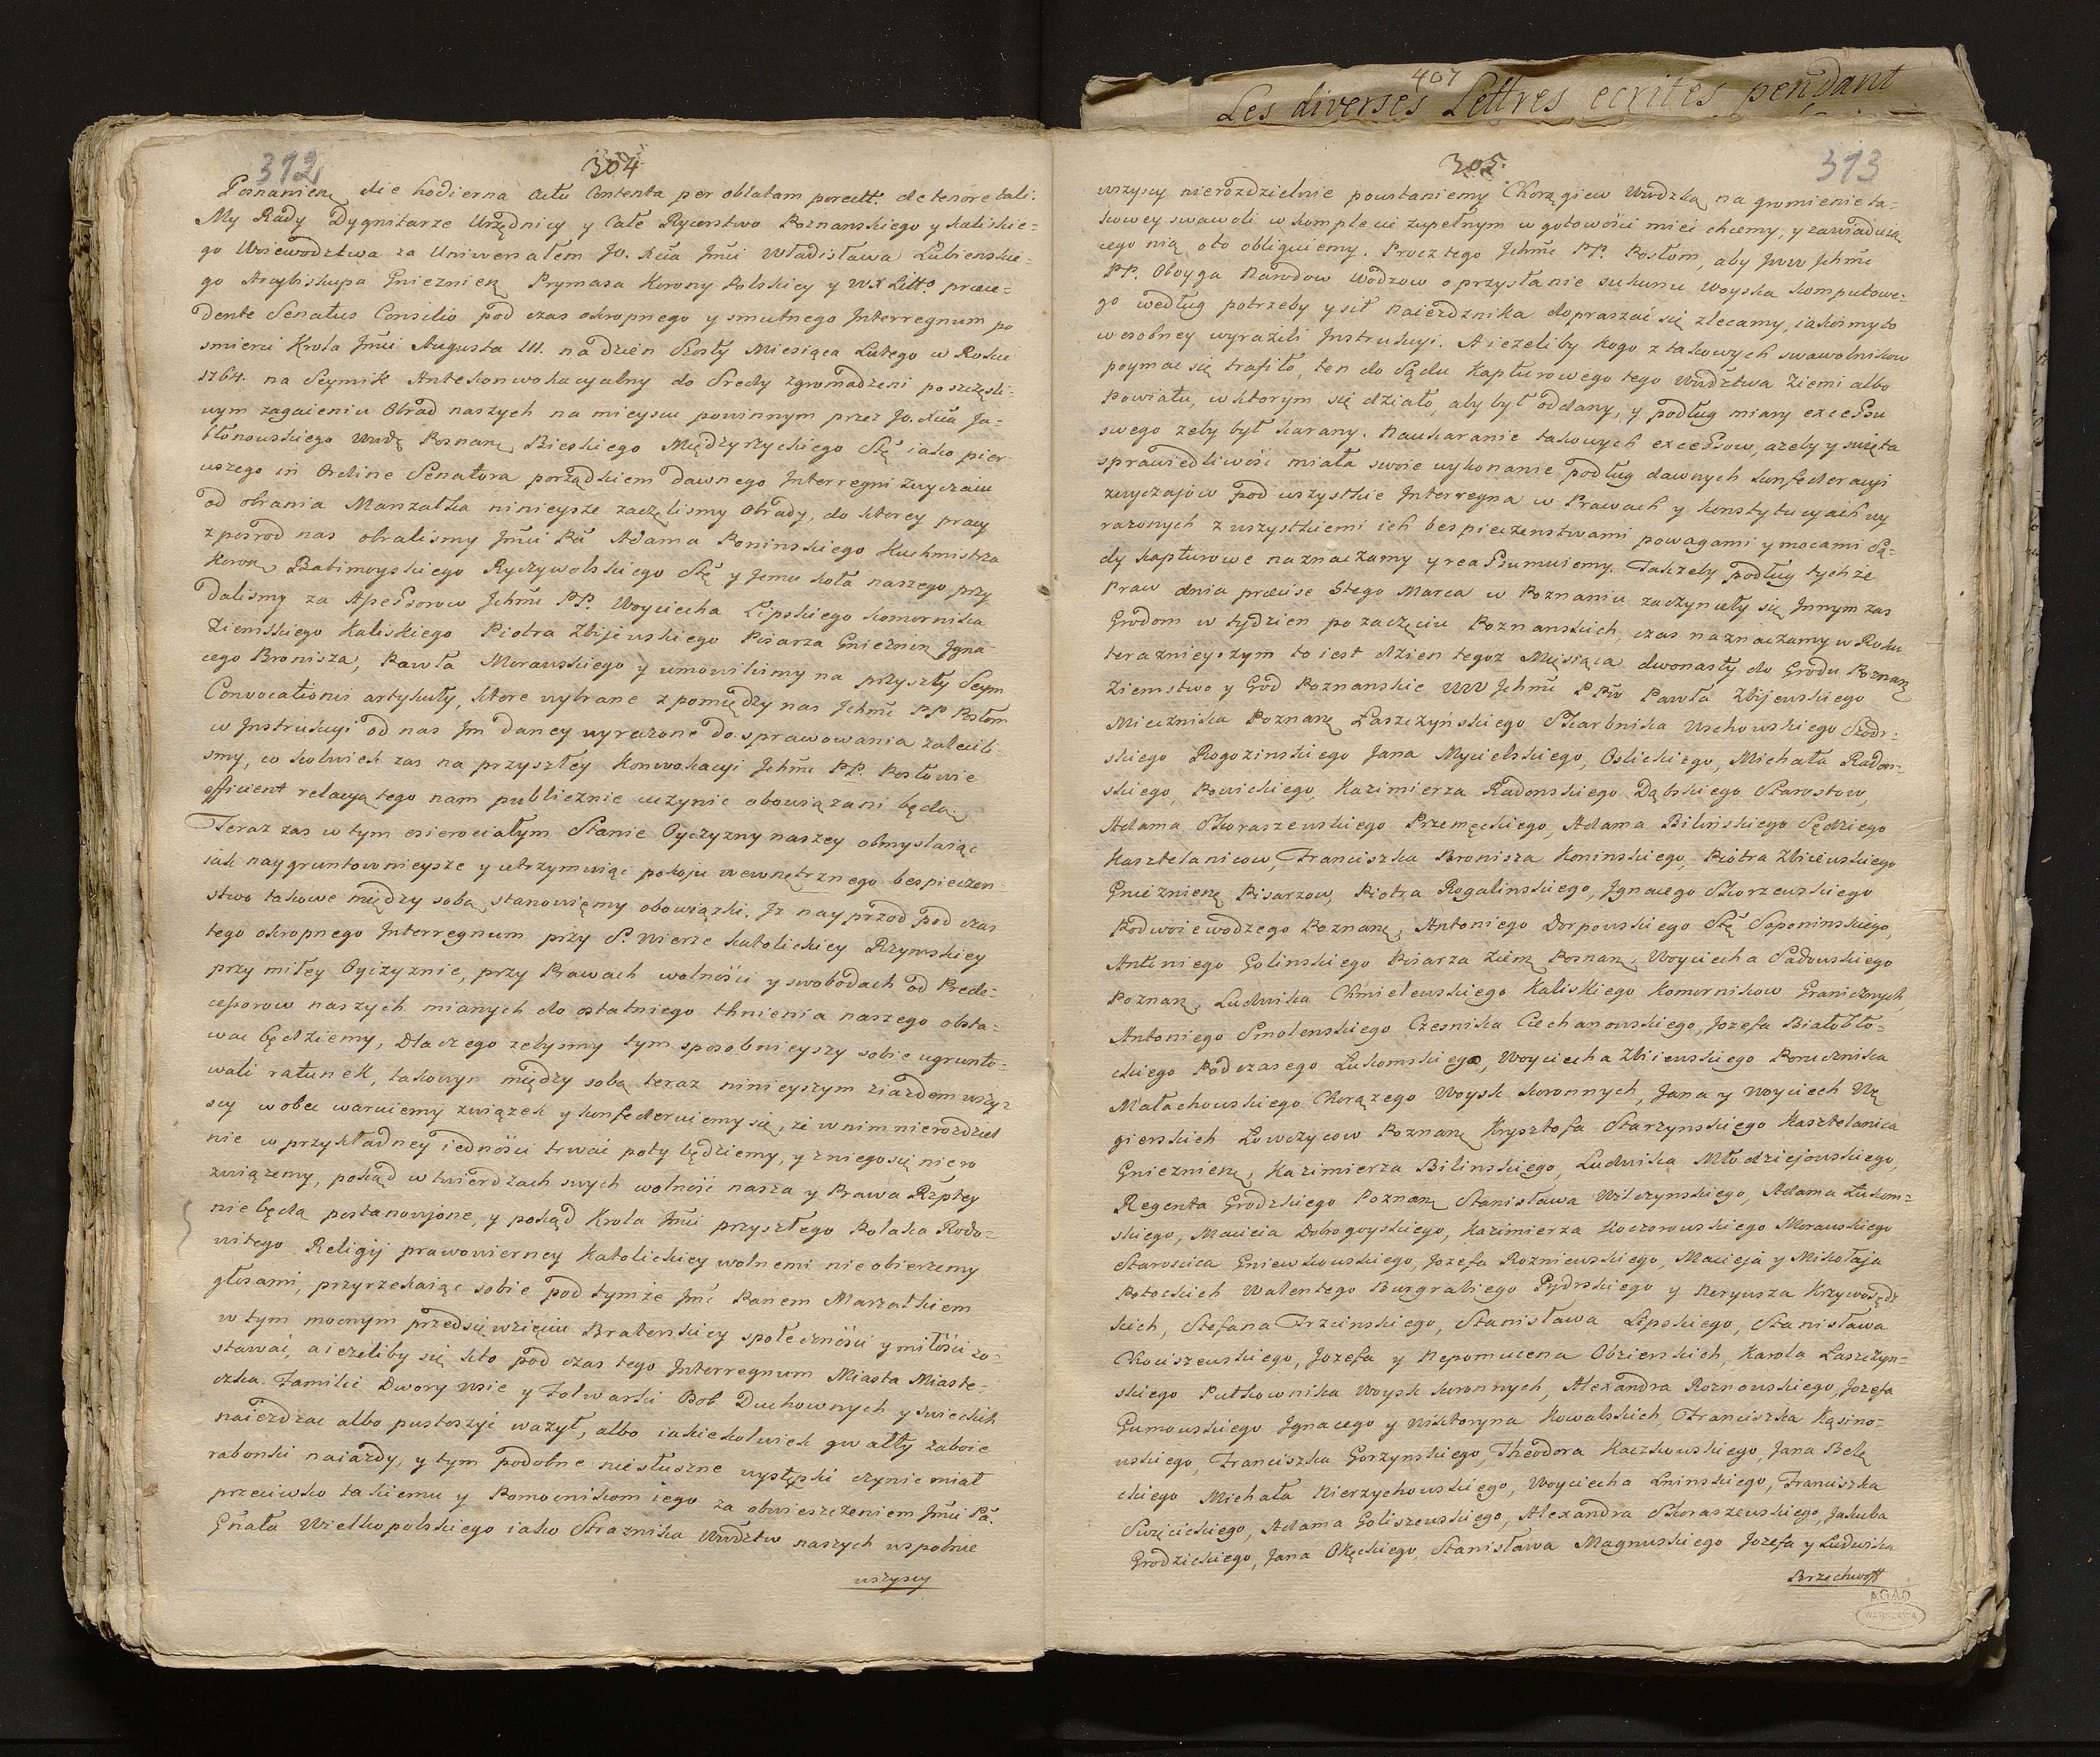 407
Les diverses Lettres ecrites pendant
312
304
Posnanien die hodierna Actu Contenta per oblatam porrect. de tenore tali.
My Rady Dygnitarze Urzędnicy y Całe Rycerstwo Poznanskiego y Kaliskie=
go Woiewodztwa za Uniwersałem Jo. Xcia Jmci Władisława Lubienskie=
go Arcybiskupa Gniezniensk Prymasa Korony Polskiey y WX Litto. præce=
dente Senatus Consilio pod czas okropnego y smutnego Interregnum po
smierci Krola Jmci Augusta III. na dzien Szosty Miesiąca Lutego w Roku
1764. na Seymik Antekonwokacyalny do Srzedy zgromadzeni po szczęsli=
wym zagaieniu Obrad naszych na mieyscu powinnym przez Jo. Xcia Ja=
błonowskiego Wwdę Poznan Bieckiego Międzyrzyckiego Stę iako pier
wszego in Ordine Senatora porządkiem dawnego Interregni zwyczaiu
od obrania Marszałka ninieysze zaczęlismy Obrady, do ktorey pracy
z posrod nas obralismy Jmci Pa Adama Poninskiego Kuchmistrza
Koron Babimoyskiego Ryczywolskiego Stę y Jemu koła naszego przy
dalismy za Assessorow Jchmc PP. Woyciecha Lipskiego Komornika
Ziemskiego Kaliskiego Piotra Zbijewskiego Pisarza Gnieznien Jgna=
cego Bronisza, Pawła Morawskiego y umowilismy na przyszły Seym
Convocationis artykuły, ktore wybrane z pomiędzy nas Jchmc PP Posłom
w Jnstrukcyi od nas Jm daney wyrazone do sprawowania zalecili=
smy, co kolwiek zas na przyszłey Konwokacyi Jchmc PP. Posłowie
efficient relacyą tego nam publicznie uczynic obowiązani będą.
Teraz zas w tym osierociałym Stanie Oyczyzny naszey obmyslaiąc
iak naygruntownieysze y utrzymuiąc pokoju wewnętrznego bespieczen=
stwo takowe między sobą stanowięmy obowiązki. Jz nayprzod pod czas
tego okropnego Interregnum przy S. Wierze Katolickiey Rzymskiey
przy miłey Oyczyznie, przy Prawach wolności y swobodach od Prede=
cessorow naszych mianych do ostatniego tchnienia naszego obsta=
wac będziemy, Dlaczego zebysmy tym sposobnieyszy sobie ugrunto=
wali ratunek, takowym między sobą teraz ninieyszym ziazdem wszy=
scy wobec waruiemy związek y konfederuiemy się, że w nim nierozdziel
nie w przykładney iedności trwać poty będziemy, y z niego się niero
zwiążemy, pokąd w twierdzach swych wolność nasza y Prawa Rzptey
nie będą postanowjone, y pokąd Krola Jmci przyszłego Polaka Rodo=
witego Religij prawowierney Katolickiey wolnemi nie obierzemy
głosami, przyrzekaiąc sobie pod tymże Jmc Panem Marszałkiem
w tym mocnym przedsięwzięciu Braterskiey społeczności y miłości zo=
stawać, a iezeliby się kto pod czas tego Interregnum Miasta Miaste=
czka. Familii Dwory wsie y Folwarki Osob Duchownych y swieckich
naiezdzac albo pustoszyć wazył, albo iakiekolwiek gwałty zaboie
rabonki naiazdy, y tym podobne niesłuszne występki czynic miał
przeciwko takiemu y Pomocnikom iego za obwieszczeniem Jmci Pa.
Gnała Wielkopolskiego iako Straznika Wwdztw naszych wspolnie
wszyscy
305.
313
wszyscy nierozdzielnie powstaniemy Chorągiew Wwdzką na gromienie ta=
kowey swawoli w komplecie zupełnym w gotowości mieć chcemy, y zawiaduią
cego nią oto obliguiemy. Procz tego Jchmc PP. Posłom, aby Jww Jchmc
PP. Oboyga Narodow Wodzow o przysłanie sukursu Woyska komputowe=
go według potrzeby y sił naiezdznika dopraszać się zlecamy, iakosmy to
w osobney wyrazili Jnstrukcyi. A iezeliby kogo z takowych swawolnikow
poymac się trafiło, ten do Sądu Kapturowego tego Wwdztwa Ziemi albo
Powiatu, w ktorym się działo, aby był oddany, y podług miary excessu
swego zeby był karany. Na ukaranie takowych excessow, azeby y swięta
sprawiedliwość miała swoie wykonanie podług dawnych konfederacyi
zwyczajow pod wszystkie Interregna w Prawach y Konstytucyach wy
razonych z wszystkiemi ich bespieczenstwami powagami y mocami Są=
dy Kapturowe naznaczamy y reassumuiemy. Takzeby podług tychże
Praw dnia præcise 5tego Marca w Poznaniu zaczynały się Jnnym zas
Grodom w tydzien po zaczęciu Poznanskich, czas naznaczamy w Roku
teraznieyszym to iest dzien tegoz Miesiąca dwonasty do Grodu Poznan
Ziemstwo y Grod Poznanskie WW Jchmc PPw Pawła Zbijewskiego
Miecznika Poznan Łaszczyńskiego Skarbnika Wschowskiego Szodr=
skiego Rogozinskiego Jana Mycielskiego, Oslickiego, Michała Radon=
skiego, Powickiego, Kazimierza Radonskiego Dąbskiego Starostow,
Adama Skoraszewskiego Przemęckiego, Adama Bilińskiego Sędziego
Kasztelanicow, Franciszka Bronisza Koninskiego, Piotra Zbiiewskiego
Gnieznien Pisarzow, Piotra Rogalinskiego, Jgnacego Skorzewskiego
Podwoiewodzego Poznan, Antoniego Dorpowskiego Stę Soponinskiego,
Antoniego Golinskiego Pisarza Ziem Posnan, Woyciecha Sadowskiego
Poznan, Ludwika Chmielewskiego Kaliskiego Komornikow Granicznych,
Antoniego Smolenskiego Czesnika Ciechanowskiego, Jozefa Białobło=
ckiego Podczasego Łukomskiego, Woyciecha Zbiiewskiego Porucznika
Małachowskiego Chorązego Woysk koronnych, Jana y Woyciech Wę
gierskich Łowczycow Poznan Krysztofa Starzynskiego Kasztelanica
Gnieznien, Kazimierza Bilinskiego, Ludwika Młodziejowskiego,
Regenta Grodzkiego Poznan Stanisława Wilczynskiego, Adama Łukom=
skiego, Macieia Dobrogoyskiego, Kazimierza Koczorowskiego Morawskiego
Staroscica Gniewkowskiego, Jozefa Rozniewskiego, Macieja y Mikołaja
Potockich Walentego Burgrabiego Pyzdrskiego y Neryusza Krzywosądz
kich, Stefana Trzcinskiego, Stanisława Lipskiego, Stanisława
Chociszewskiego, Jozefa y Nepomucena Obzierskich, Karola Łaszczyn=
skiego Pułkownika Woysk koronnych, Alexandra Roznowskiego, Jozefa
Gumowskiego Jgnacego y Wiktoryna Kowalskich, Franciszka Kąsino=
wskiego, Franciszka Gorzynskiego, Theodora Kaczkowskiego, Jana Belę
ckiego Michała Nierzychowskiego, Woyciecha Lninskiego, Franciszka
Swięcickiego, Adama Goliszewskiego, Alexandra Skoraszewskiego, Jakuba
Grodzickiego, Jana Okęckiego, Stanisława Magnuskiego Jozefa y Ludwika
Brzechwoff
AGAD
WARSZAWA